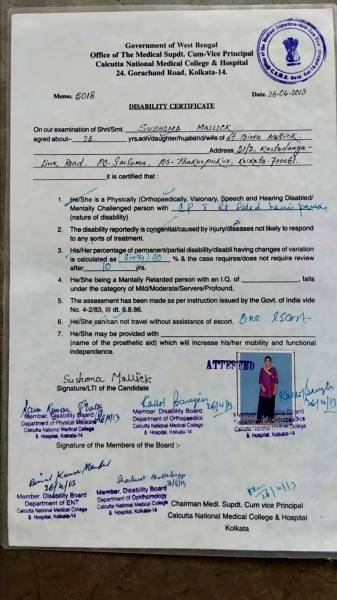 Government of West Bengal
Office of The Medical Supdt. Cum-Vice Principal
Calcutta National Medical College & Hospital
24. Gorachand Road, Kolkata-14.
Memo. 5018
Date. 26-04-2013
DISABILITY CERTIFICATE
On our examination of Shri/Smt. SUSHOMA MALLICK
agred about- 25 yrs.son/daughter/husband/wife of Lt. Mallick
Address 51/2, Kastodanga-
Link Road. PO- Sarsuna, PS- Thakurpukur, Kolkata-700061.
it is certified that :
1. He/She is a Physically (Orthopaedically, Visionary, Speech and Hearing Disabled/
Mentally Challenged person with CP Rt Sided
(nature of disability)
2. The disability reportedly is congenital/caused by injury/diseases not likely to respond
to any sorts of treatment.
3. His/Her percentage of permanent/partial disability/disabli having changes of variation
is calculated as Sixty/60 % & the case requires/does not require review
after 10 yrs.
4. He/She being a Mantally Retarded person with an I.Q. of , falls
under the category of Mild/Moderate/Servere/Profound.
5. The assessment has been made as per instruction issued by the Govt. of India vide
No. 4-2/83, III dt. 6.8.86.
6. He/She can/can not travel without assistance of escort. One escort.
7. He/She may be provided with
(name of the prosthetic aid) which will increase his/her mobility and functional
independence.
ATTESTED
Sushoma Mallick
Signature/LTI of the Candidate
26/4/13
Member Disability Board
Department of Physical Medicine
Calcutta National Medical College
& Hospital, Kolkata-14
Member Disability Board
Department of Orthopaedics
Calcutta National Medical College
& Hospital, Kolkata-14
26/4/13
Signature of the Members of the Board :-
26/4/13
Member Disability Board
Department of ENT
Calcutta National Medical College
& Hospital, Kolkata-14
Member, Disability Board
Department of Ophthalmology
Calcutta National Medical College
& Hospital, Kolkata-14
26/4/13
Chairman Medl. Supdt. Cum vice Principal
Calcutta National Medical College & Hospital
Kolkata